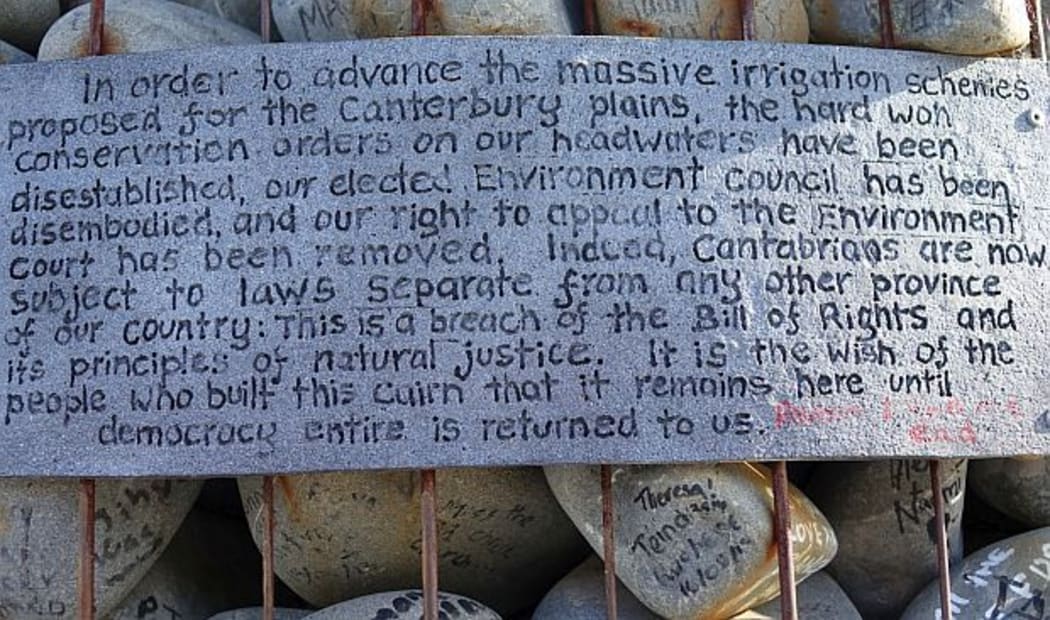 MA
In order to advance the massive irrigation schemes
proposed for the Canterbury plains, the hard won
conservation orders on our headwaters have been
disestablished, our elected Environment Council has been
disembodied, and our right to appeal to the Environment
Court has been removed. Indeed, Cantabrians are now
subject to laws separate from any other province
of our country: This is a breach of the Bill of Rights and
its principles of natural justice. It is the wish of the
people who built this cairn that it remains here until
democracy entire is returned to us.
end
Theresa